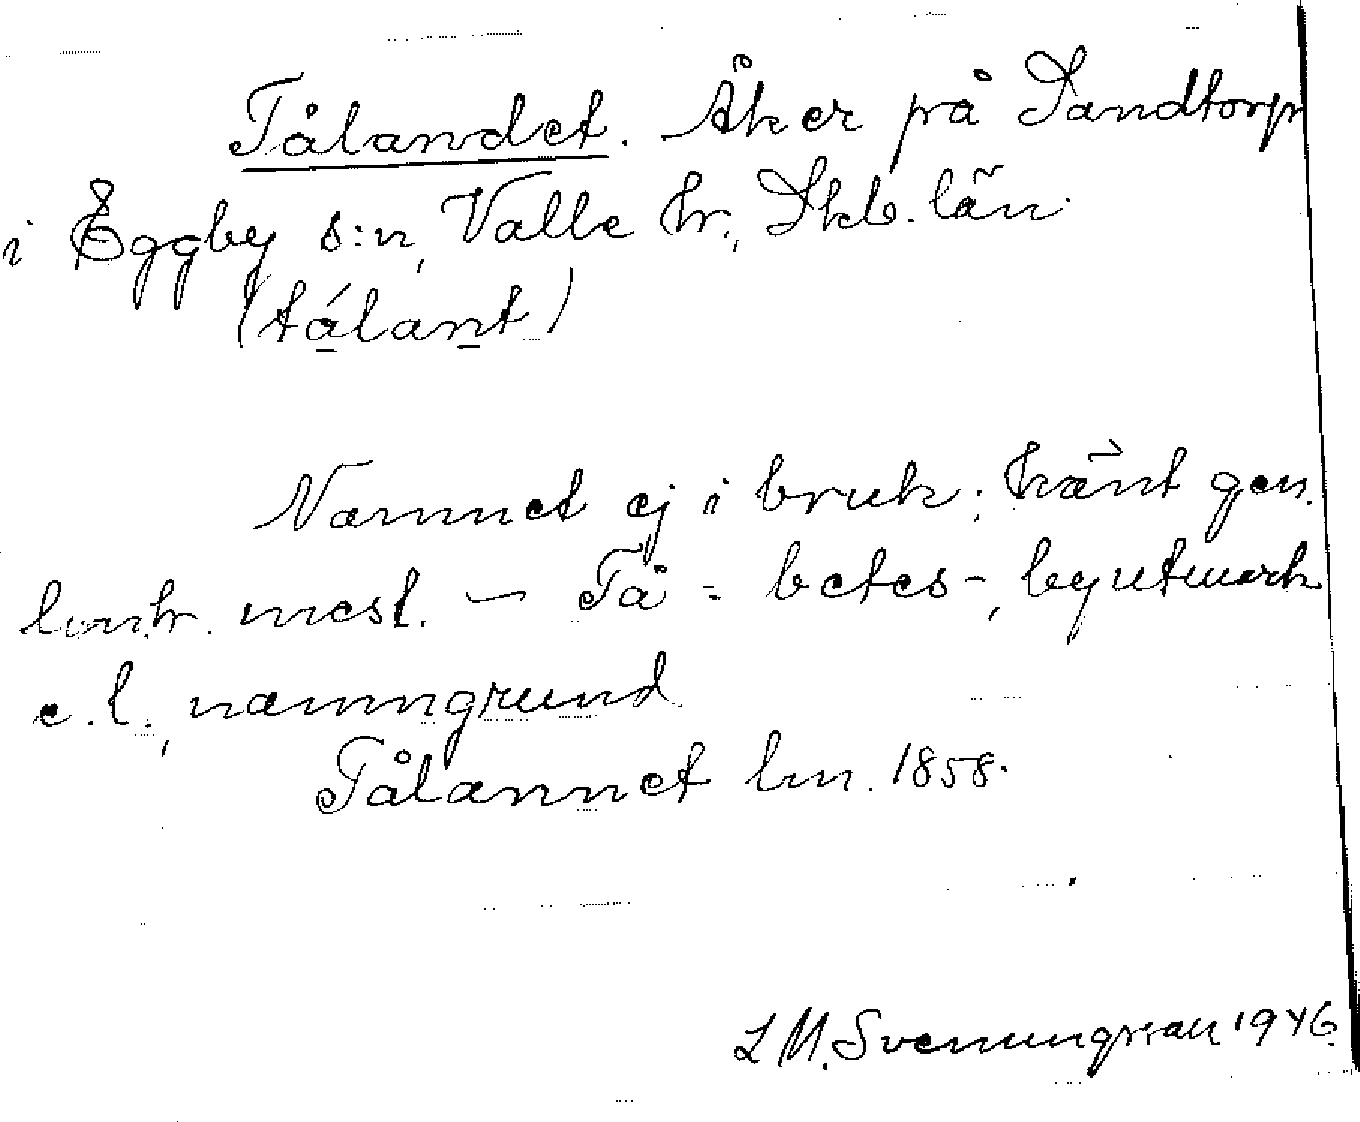 Tålandet. Åker på Sandtorp
i Eggby s:n, Valle hr., Skb. län.
(tálant)
Namnet ej i bruk; känt gen.
lantm. mest. — Tå = betes-, bymark
e.l., namngrund
Tålannet lm. 1858.
L M. Svenungsson 1946.